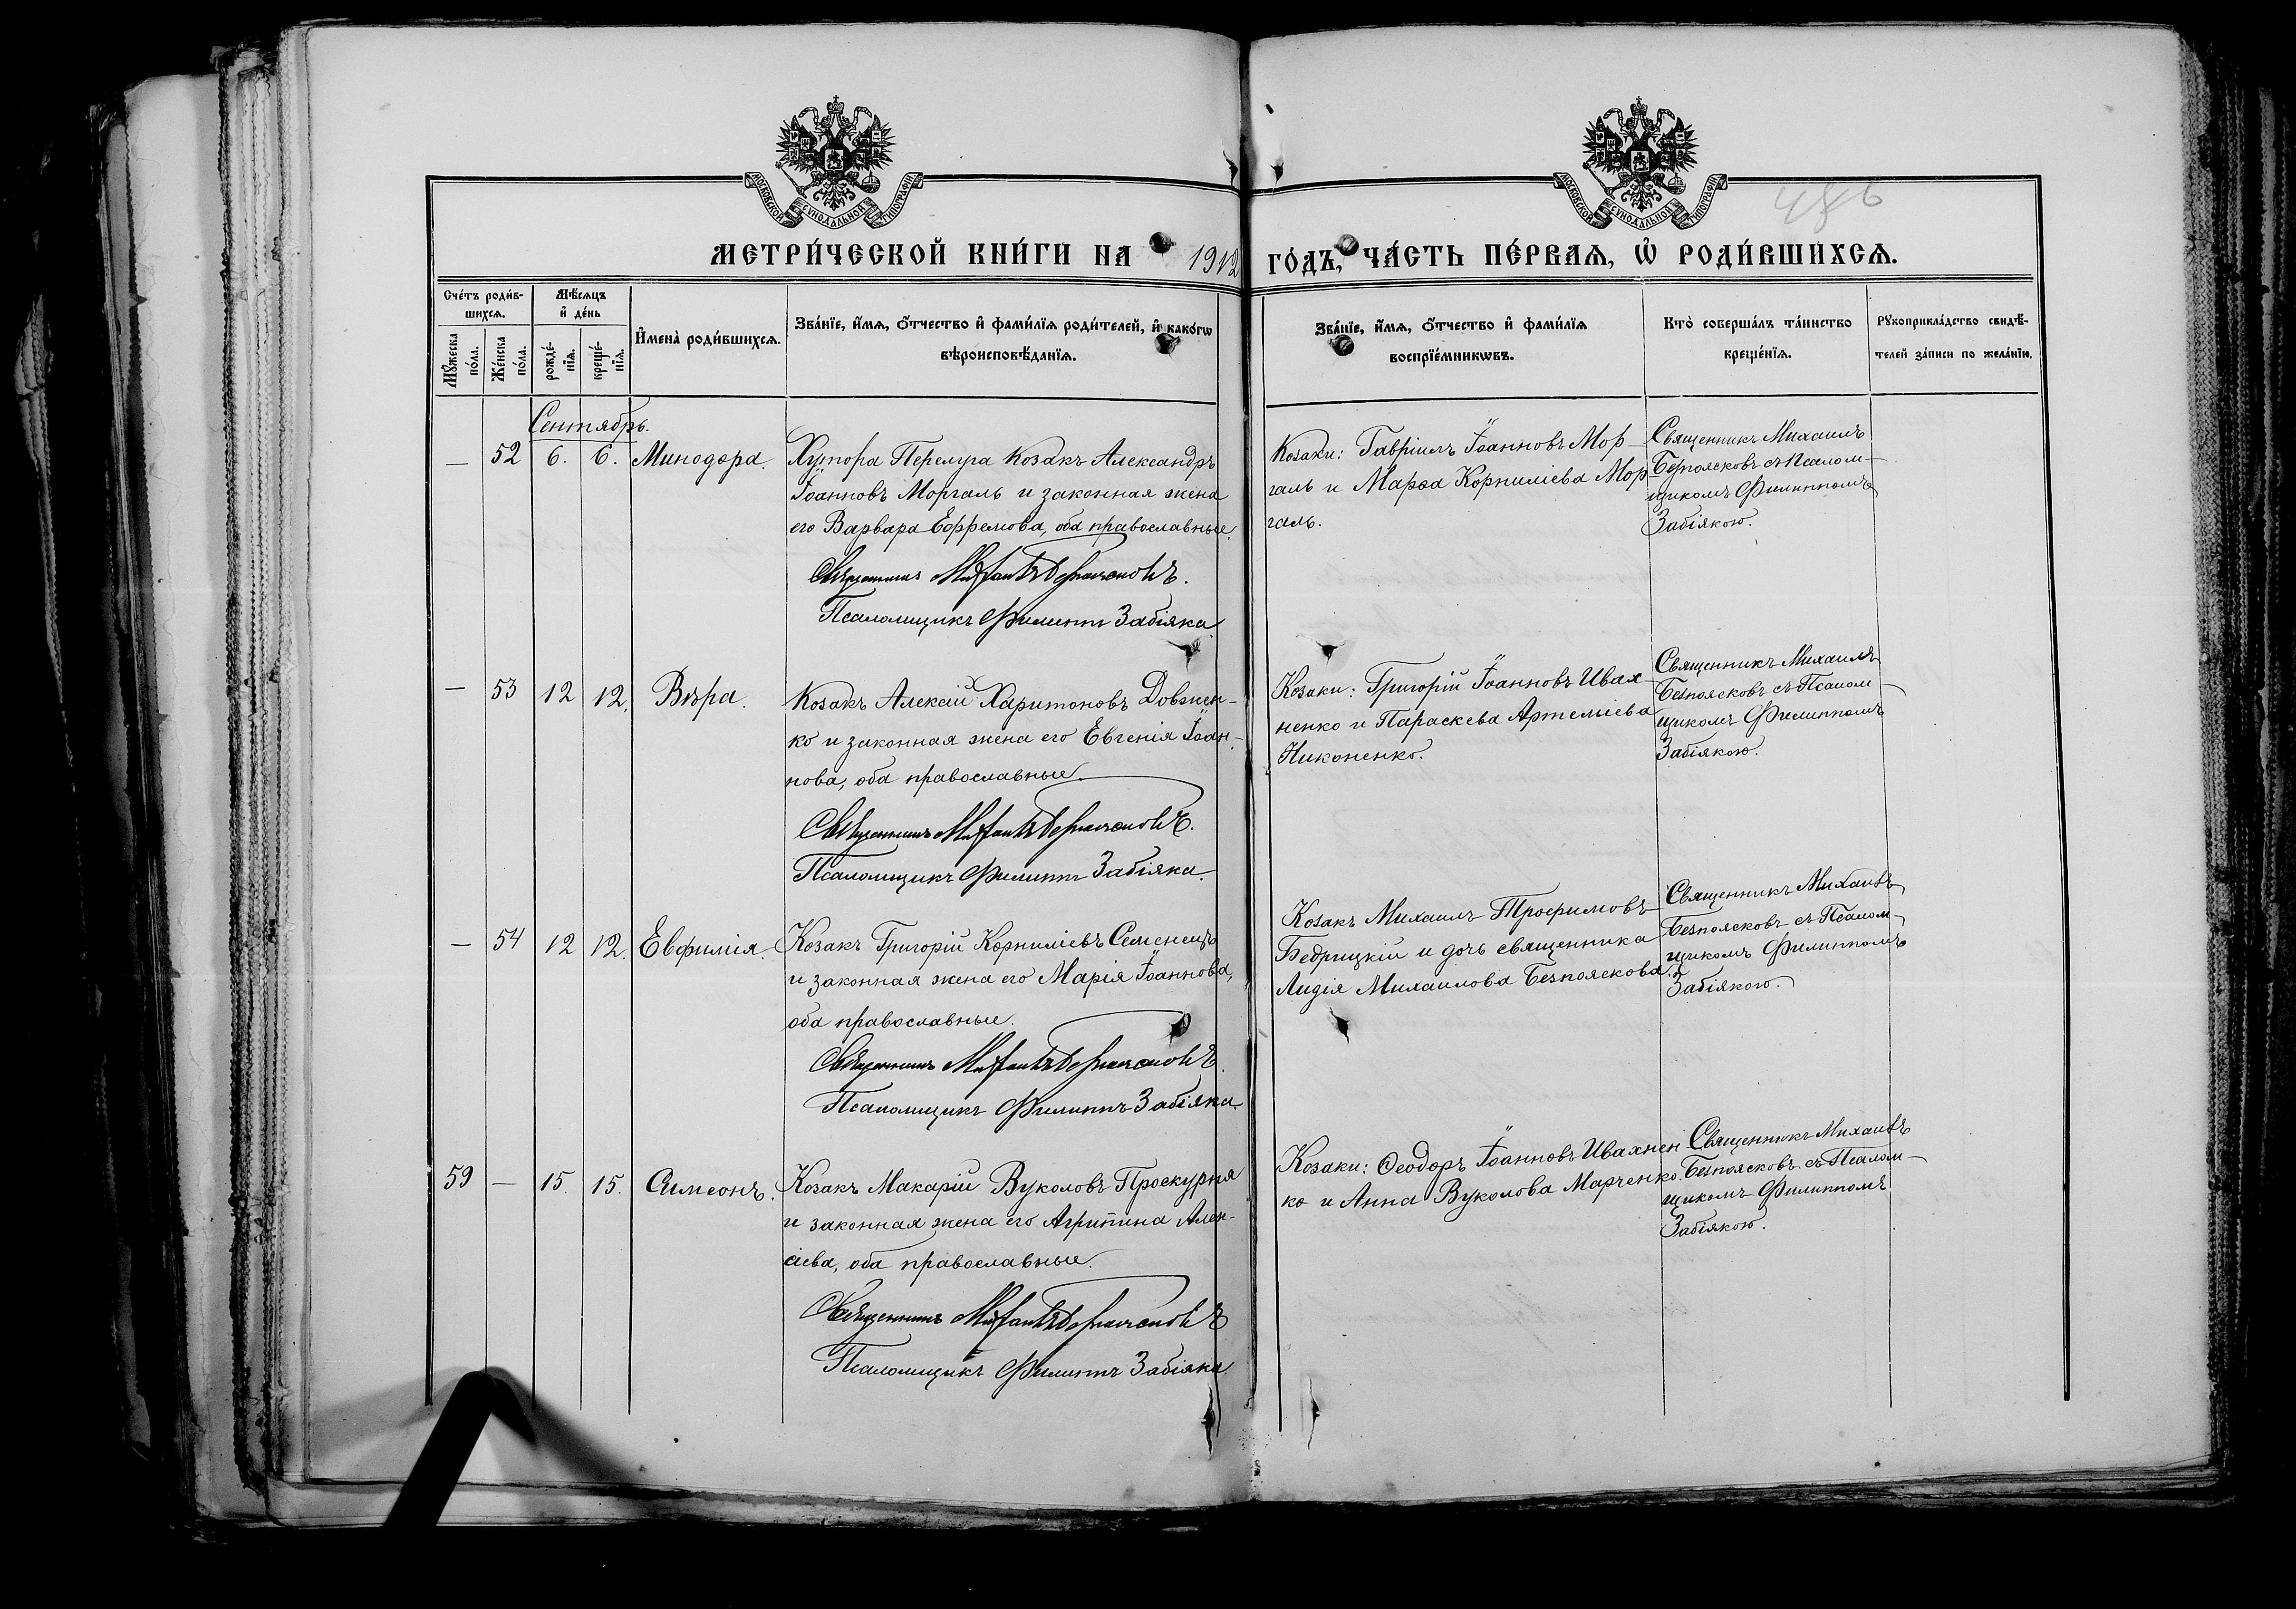 МОСКОВСКОЙ СУНОДАЛЬНОЙ ТИПОГРАФІИ
МОСКОВСКОЙ СУНОДАЛЬНОЙ ТИПОГРАФІИ
486
МЕТРИ́ЧЕСКОЙ КНИ́ГИ НА 1912 ГО́ДЪ, ЧА́СТЬ ПЕ́РВАЯ, Ѡ РОДИ́ВШИХСЯ.
Сче́тъ роди́в-
шихсѧ.
Мꙋ́жеска по́ла.
Же́нска по́ла.
Мѣ́сѧцъ
и҆ де́нь
рожде́-
нїѧ.
креще́-
нїѧ.
И҆мена̀ роди́вшихсѧ.
Зва́нїе, и҆́мѧ, ѻ҆́тчество и҆ фами́лїѧ роди́телей, и҆ како́гѡ
вѣроисповѣ́данїѧ.
Зва́нїе, и҆́мѧ, ѻ҆́тчество и҆ фами́лїѧ
воспрїе́мникѡвъ.
Кто̀ соверша́лъ та́инство
креще́нїѧ.
Рꙋкоприкла́дство свидѣ́-
телей за́писи по жела́нїю.
Сентябрь.
— 52 6. 6. Минодора.
Хутора Перелура Козакъ Александръ
Іоанновъ Моргаль и законная жена
его Варвара Ефремова, оба православные.
Священникъ Михаилъ Безпоясковъ.
Псаломщикъ Филиппъ Забіяка.
Козаки: Гавріилъ Іоанновъ Мор-
галь и Марѳа Корниліева Мор-
галь.
Священникъ Михаилъ
Безпоясковъ съ Псалом-
щикомъ Филиппомъ
Забіякою.
— 53 12 12. Вѣра.
Козакъ Алексій Харитоновъ Довжен-
ко и законная жена его Евгенія Іоан-
нова, оба православные.
Священникъ Михаилъ Безпоясковъ.
Псаломщикъ Филиппъ Забіяка.
Козаки: Григорій Іоанновъ Ивах-
ненко и Параскева Артеміева
Никоненко.
Священникъ Михаилъ
Безпоясковъ съ Псалом-
щикомъ Филиппомъ
Забіякою.
— 54 12 12. Евфимія.
Козакъ Григорій Корниліевъ Семенецъ
и законная жена его Марія Іоаннова,
оба православные.
Священникъ Михаилъ Безпоясковъ.
Псаломщикъ Филиппъ Забіяка.
Козакъ Михаилъ Трофимовъ
Бедрицкій и дочь священника
Лидія Михаилова Безпояскова.
Священникъ Михаилъ
Безпоясковъ съ Псалом-
щикомъ Филиппомъ
Забіякою.
59 — 15. 15. Симеонъ.
Козакъ Макарій Вуколовъ Проскурня
и законная жена его Агрипина Алек-
сіева, оба православные.
Священникъ Михаилъ Безпоясковъ
Псаломщикъ Филиппъ Забіяка.
Козаки: Ѳеодоръ Іоанновъ Ивахнен
ко и Анна Вуколова Марченко.
Священникъ Михаилъ
Безпоясковъ съ Псалом-
щикомъ Филиппомъ
Забіякою.